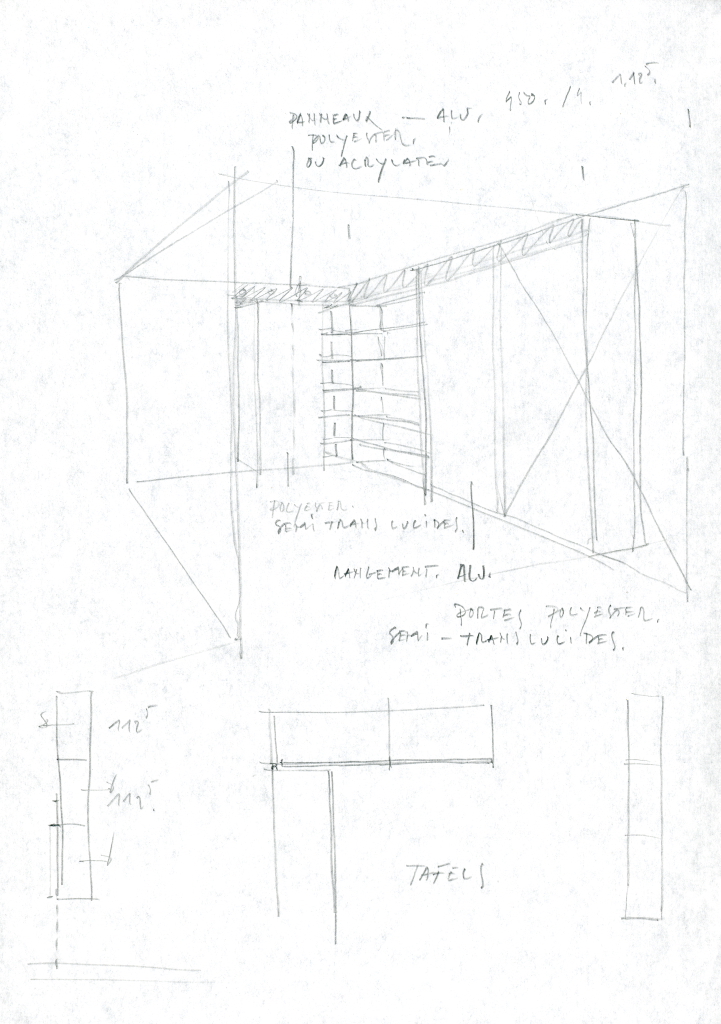 1,12⁵.
450. /4.
PANNEAUX — ALU.
POLYESTER.
OU ACRYLATE.
POLYESTER.
SEMI TRANSLUCIDES.
RANGEMENT. ALU.
PORTES POLYESTER.
SEMI-TRANSLUCIDES.
112⁵
112⁵.
TAFELS